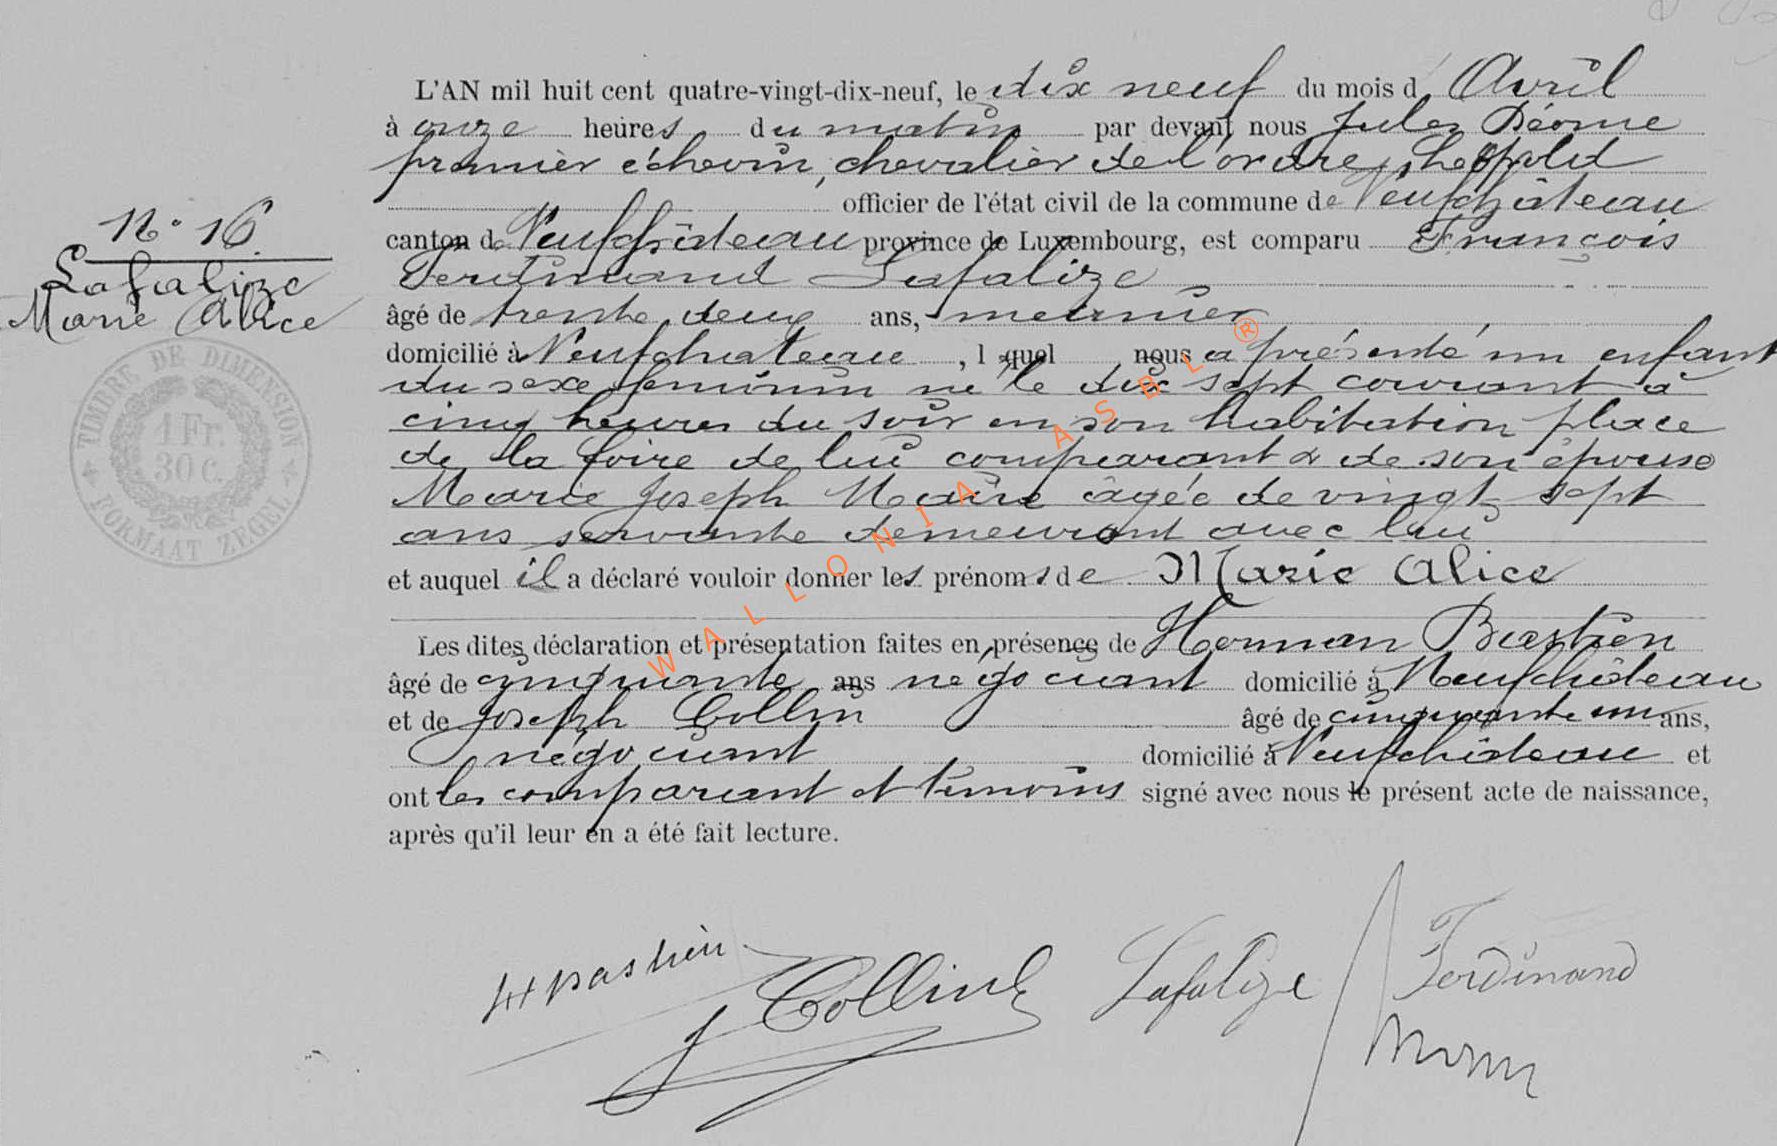 L'AN mil huit cent quatre-vingt-dix-neuf, le dix neuf du mois d'Avril
à onze heures du matin par devant nous Jules
premier échevin, chevalier de l'ordre Léopold
officier de l'état civil de la commune de Neufchâteau
canton de Neufchâteau province de Luxembourg, est comparu François
Ferdinand Lafalize
âgé de trente deux ans, meunier
domicilié à Neufchateau, lequel nous a présenté un enfant
du sexe feminin né le dix sept courant à
cinq heures du soir en son habitation place
de la foire de lui comparant & de son épouse
Marie Joseph âgée de vingt sept
ans servante demeurant avec lui
et auquel il a déclaré vouloir donner les prénoms de Marie Alice
Les dites déclaration et présentation faites en présence de Herman Bastien
âgé de cinquante ans négociant domicilié à Neufchâteau
et de Joseph Collin âgé de cinquante un ans,
négociant domicilié à Neufchâteau et
ont les comparant et témoins signé avec nous le présent acte de naissance,
après qu'il leur en a été fait lecture.
N° 16
Lafalize
Marie Alice
TIMBRE DE DIMENSION
1 Fr.
30 c.
FORMAAT ZEGEL
WALLONIA ASBL ®
H Bastien
J Collin
Lafalize Ferdinand